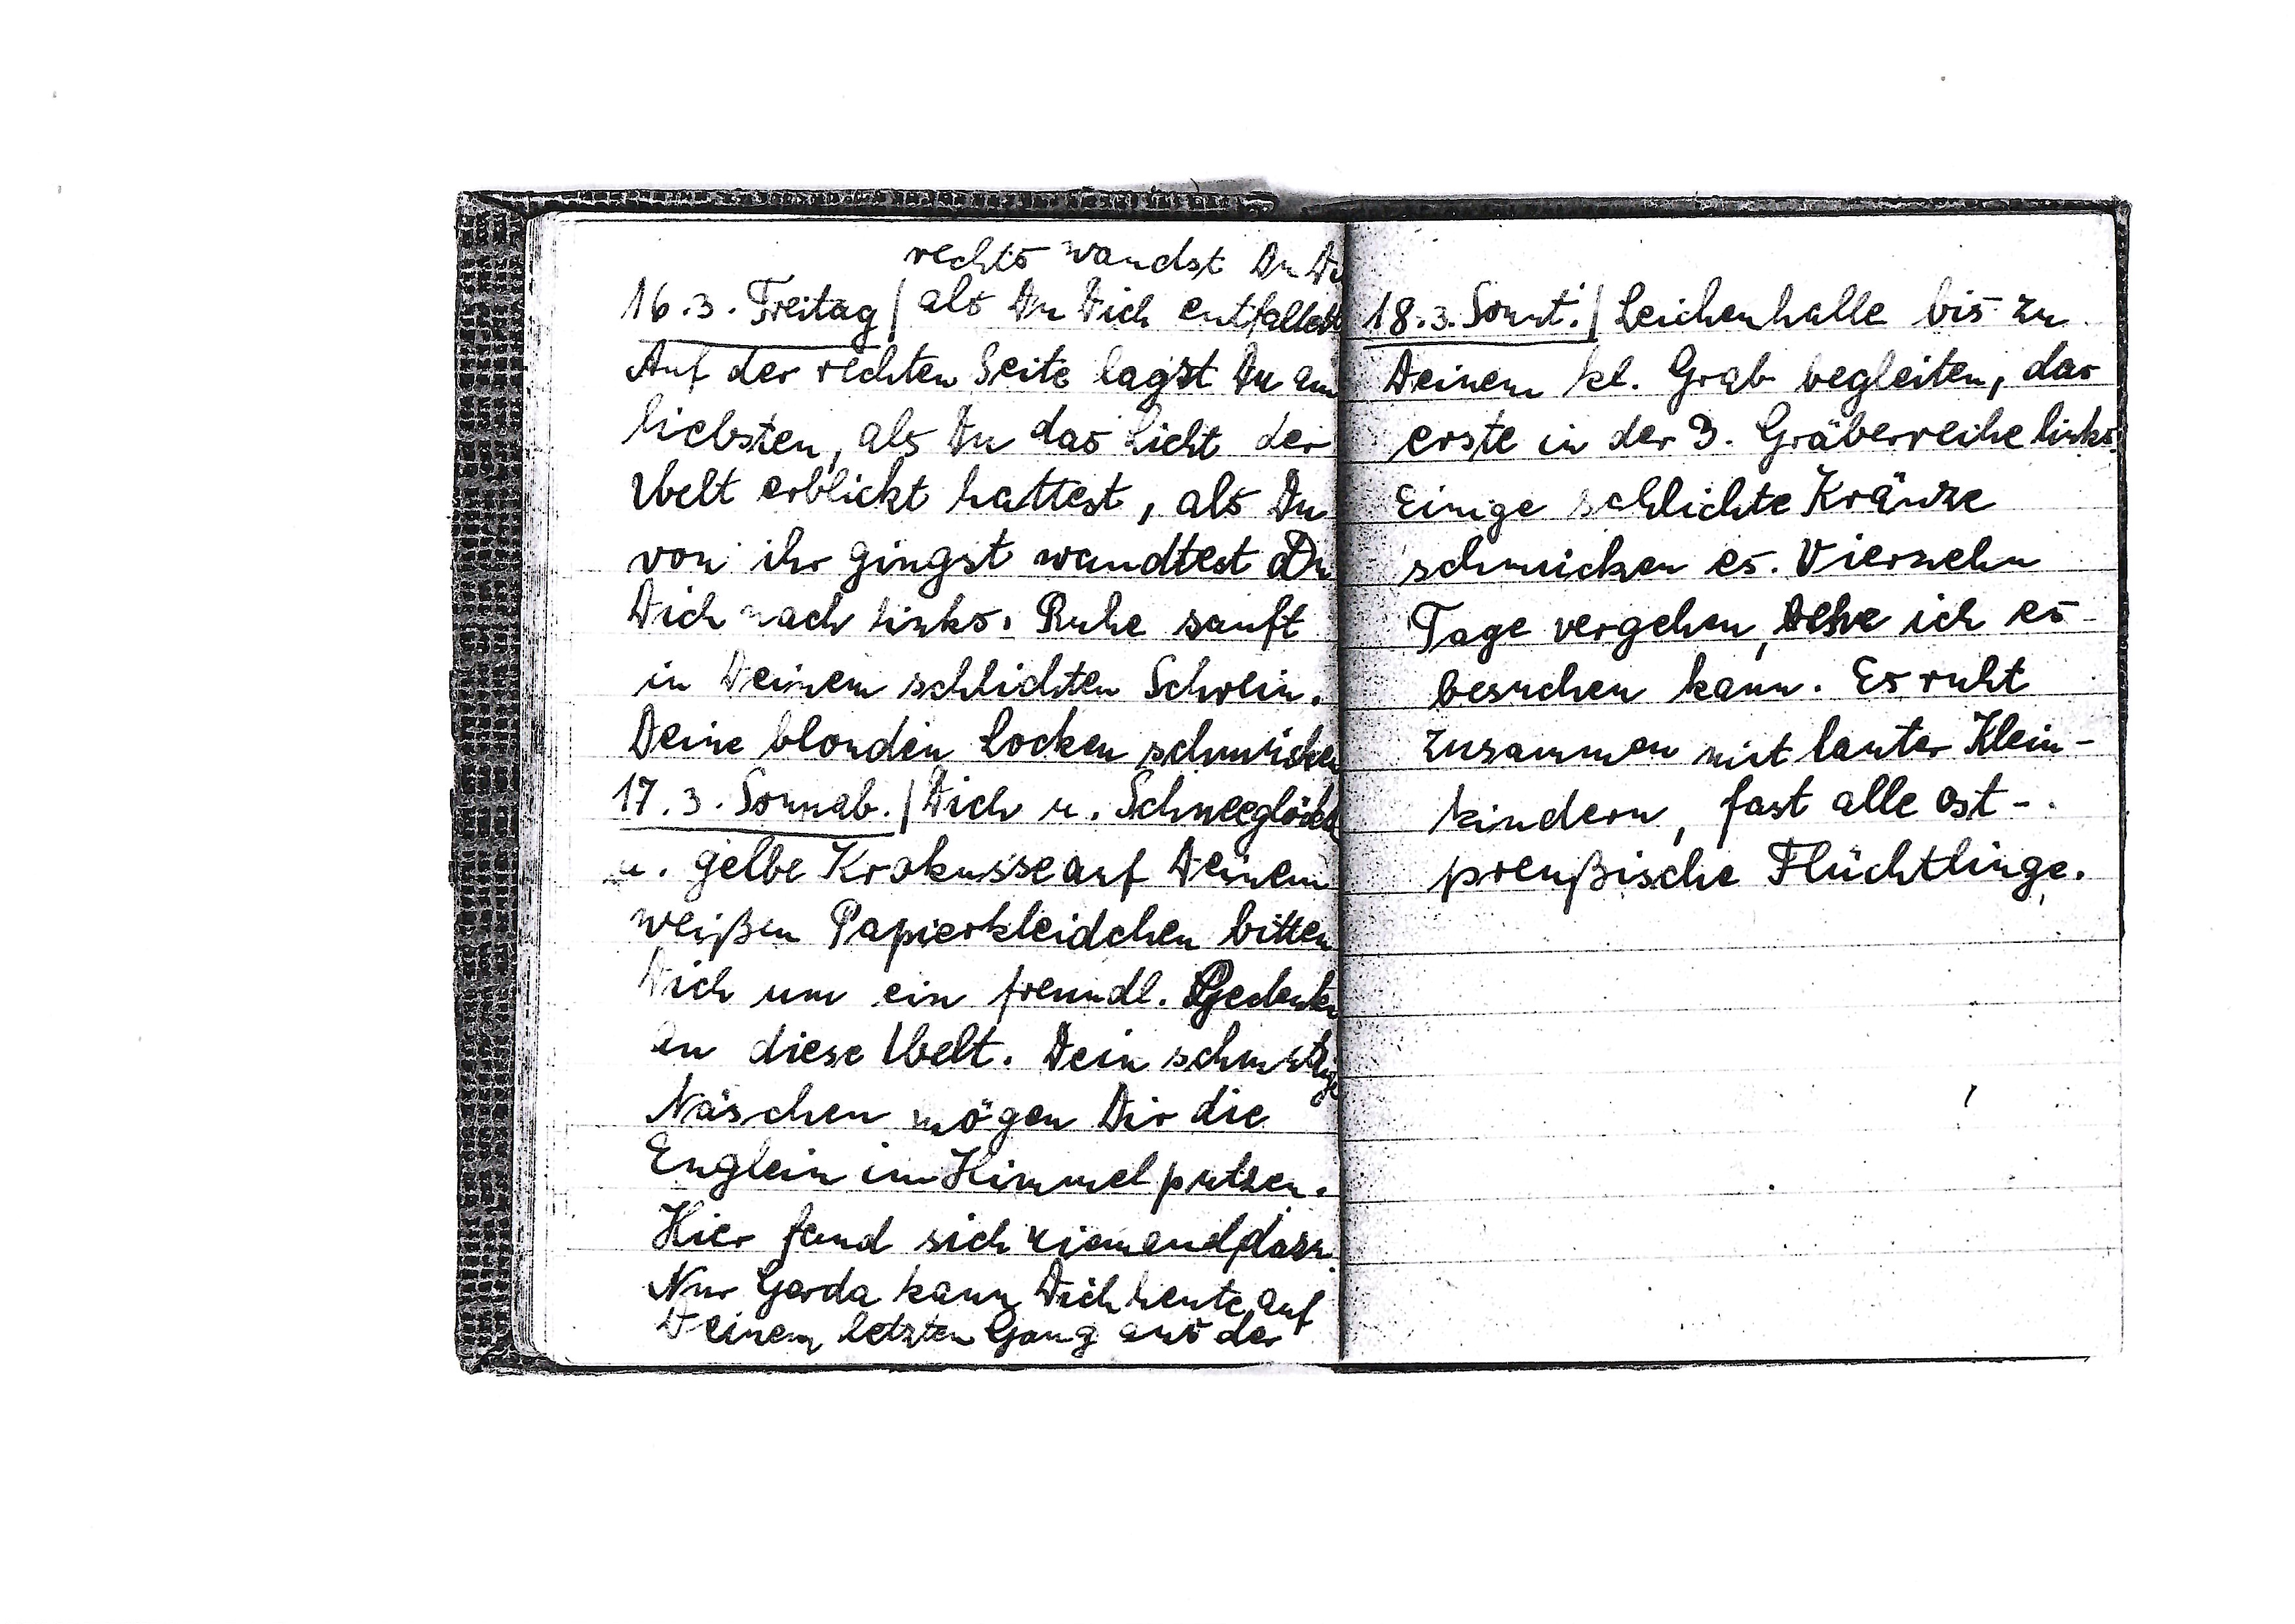 rechts wandst Du Di
16.3. Freitag / als Du Dich entfaltest
Auf der rechten Seite lagst Du am
liebsten, als Du das Licht der
Welt erblickt hattest, als Du
von ihr gingst wandtest Du
Dich nach links. Ruhe sanft
in Deinem schlichten Schrein.
Deine blonden Locken schmücken
17.3. Sonnab. / Dich u. Schneeglöck
u. gelbe Krokusse auf Deinem
weißen Papierkleidchen bitten
Dich um ein freundl. Gedenken
an diese Welt. Dein schmutzige
Näschen mögen Dir die
Englein im Himmel putzen.
Hier fand sich niemand dazu.
Nur Gerda kann Dich heute auf
Deinem letzten Gang aus der
18.3. Sonnt. / Leichenhalle bis zu
Deinem kl. Grab begleiten, das
erste in der 3. Gräberreihe links.
Einige schlichte Kränze
schmücken es. Vierzehn
Tage vergehen, ehe ich es
besuchen kann. Es ruht
zusammen mit lauter Klein-
kindern, fast alle ost-
preußische Flüchtlinge.